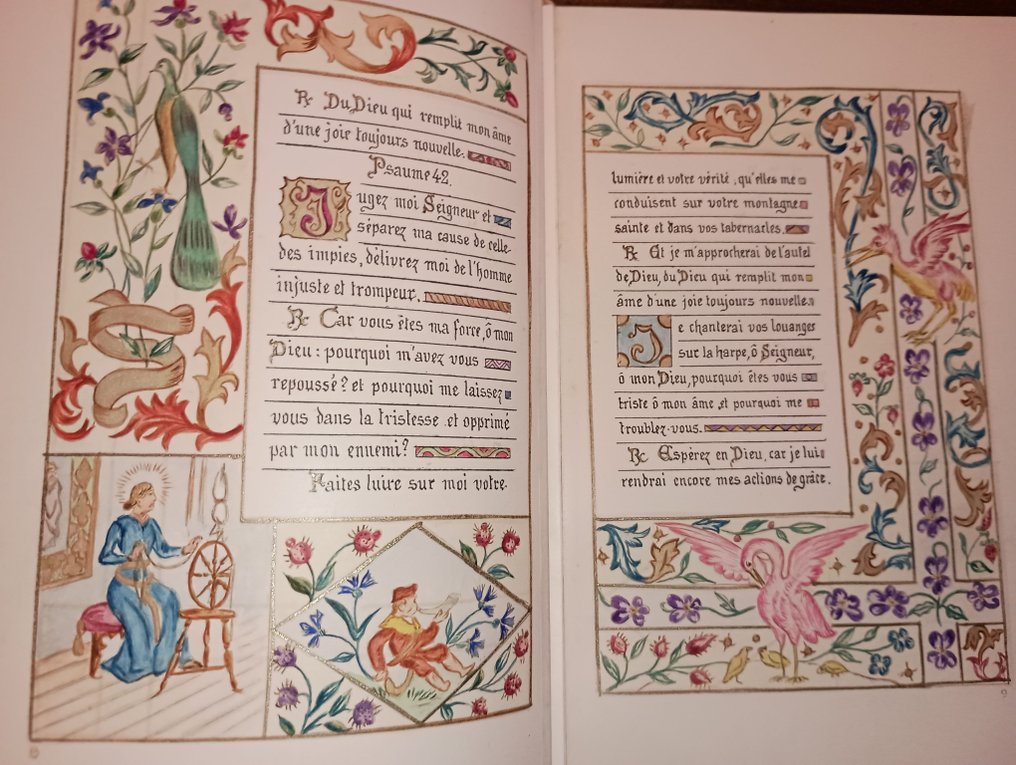 ℟ Du Dieu qui remplit mon âme
d'une joie toujours nouvelle.
Psaume 42.
Jugez moi Seigneur et
séparez ma cause de celle
des impies, délivrez moi de l'homme
injuste et trompeur.
℟ Car vous êtes ma force, ô mon
Dieu : pourquoi m'avez vous
repoussé ? et pourquoi me laissez
vous dans la tristesse et opprimé
par mon ennemi ?
Faites luire sur moi votre
lumière et votre vérité ; qu'elles me
conduisent sur votre montagne
sainte et dans vos tabernacles.
℟ Et je m'approcherai de l'autel
de Dieu, du Dieu qui remplit mon
âme d'une joie toujours nouvelle.
Je chanterai vos louanges
sur la harpe, ô Seigneur,
ô mon Dieu, pourquoi êtes vous
triste ô mon âme, et pourquoi me
troublez-vous.
℟ Espérez en Dieu, car je lui
rendrai encore mes actions de grâce.
8
9